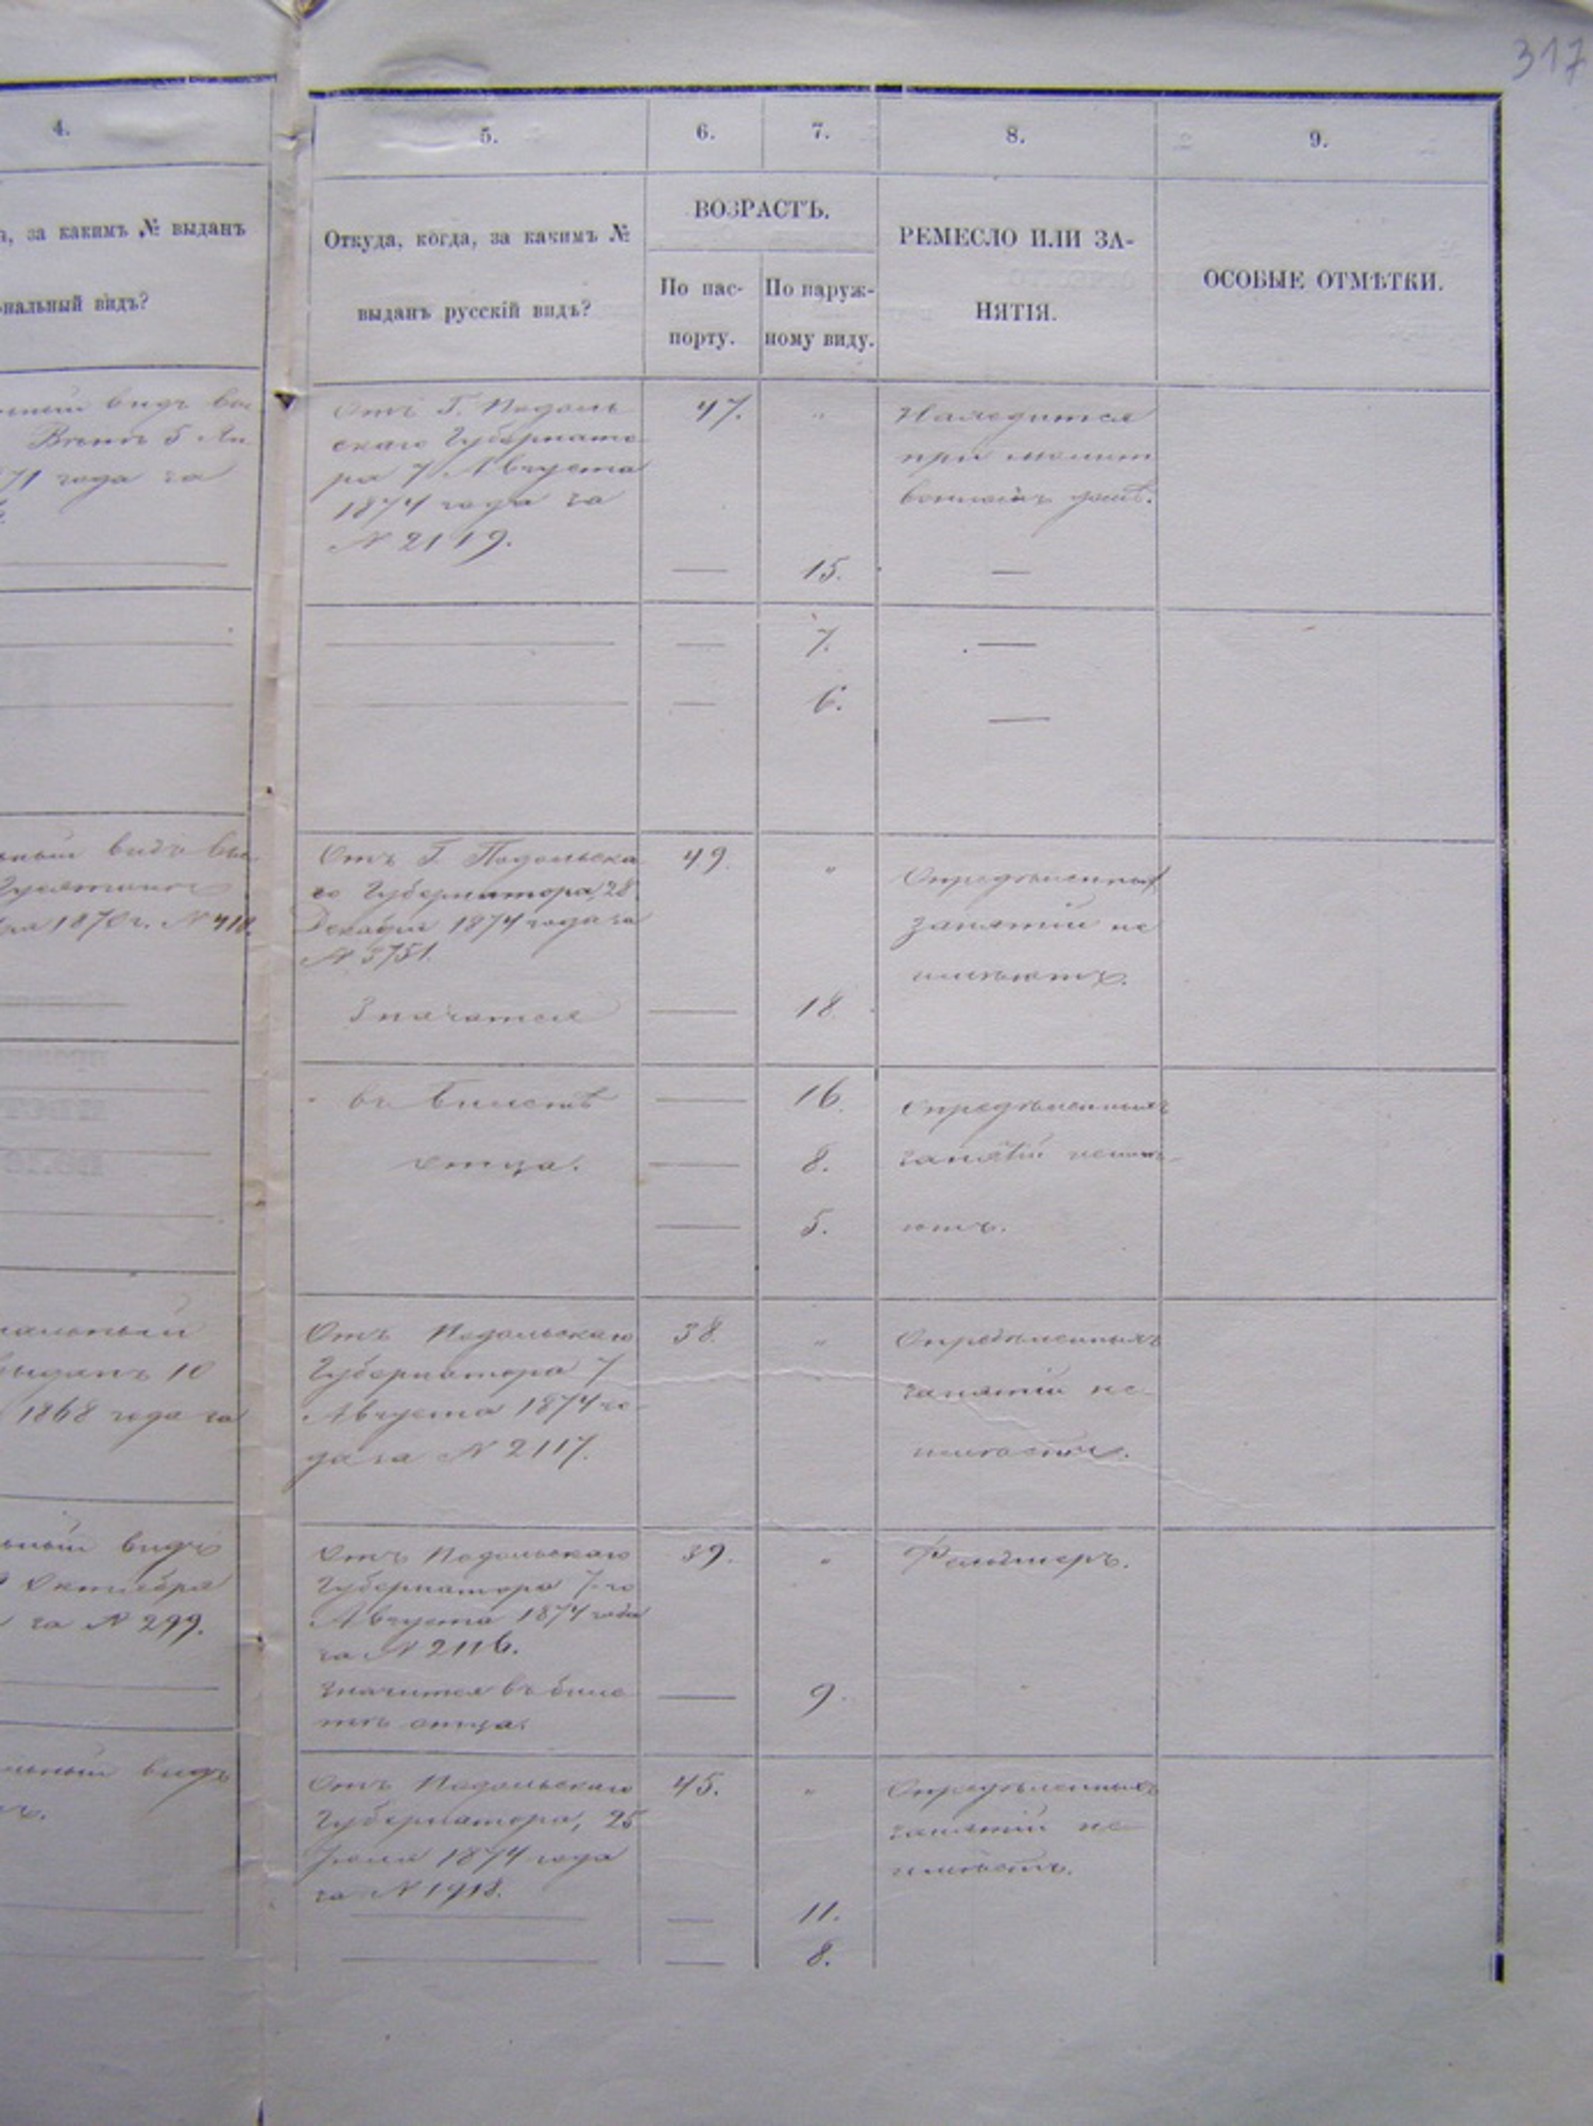 317
4.
5.
6.
7.
8.
9.
за какимъ № выданъ
нальный видъ?
Откуда, когда, за какимъ №
выданъ русскій видъ?
ВОЗРАСТЪ.
По пас-
порту.
По наруж-
ному виду.
РЕМЕСЛО ИЛИ ЗА-
НЯТІЯ.
ОСОБЫЕ ОТМѢТКИ.
видъ
5
71 года за
Отъ Г. Подоль
скаго Губернато-
ра 7 Августа
1874 года за
№ 2119.
47.
"
Находится
при молит
венномъ домѣ.
—
15.
—
—
7.
—
—
6.
—
видъ
1870 г. № 418.
Отъ Г. Подольска-
го Губернатора, 28
Декабря 1874 года за
№ 3751.
49.
"
Опредѣленныхъ
занятій не
имѣютъ.
Значатся
—
18.
въ билетѣ
отца.
—
16.
—
8.
—
5.
Опредѣленныхъ
занятій неимѣ-
ютъ.
выданъ 10
1868 года за
Отъ Подольскаго
Губернатора 7
Августа 1874 го-
да за № 2117.
38.
"
Опредѣленныхъ
занятій не-
имѣетъ.
видъ
Октября
за № 299.
Отъ Подольскаго
Губернатора 7-го
Августа 1874 года
за № 2116.
39.
"
Фельдшеръ.
Значится въ биле-
тѣ отца.
—
9.
видъ
Отъ Подольскаго
Губернатора, 25
Іюля 1874 года
за № 1918.
45.
"
Опредѣленныхъ
занятій не
имѣетъ.
—
11.
—
8.